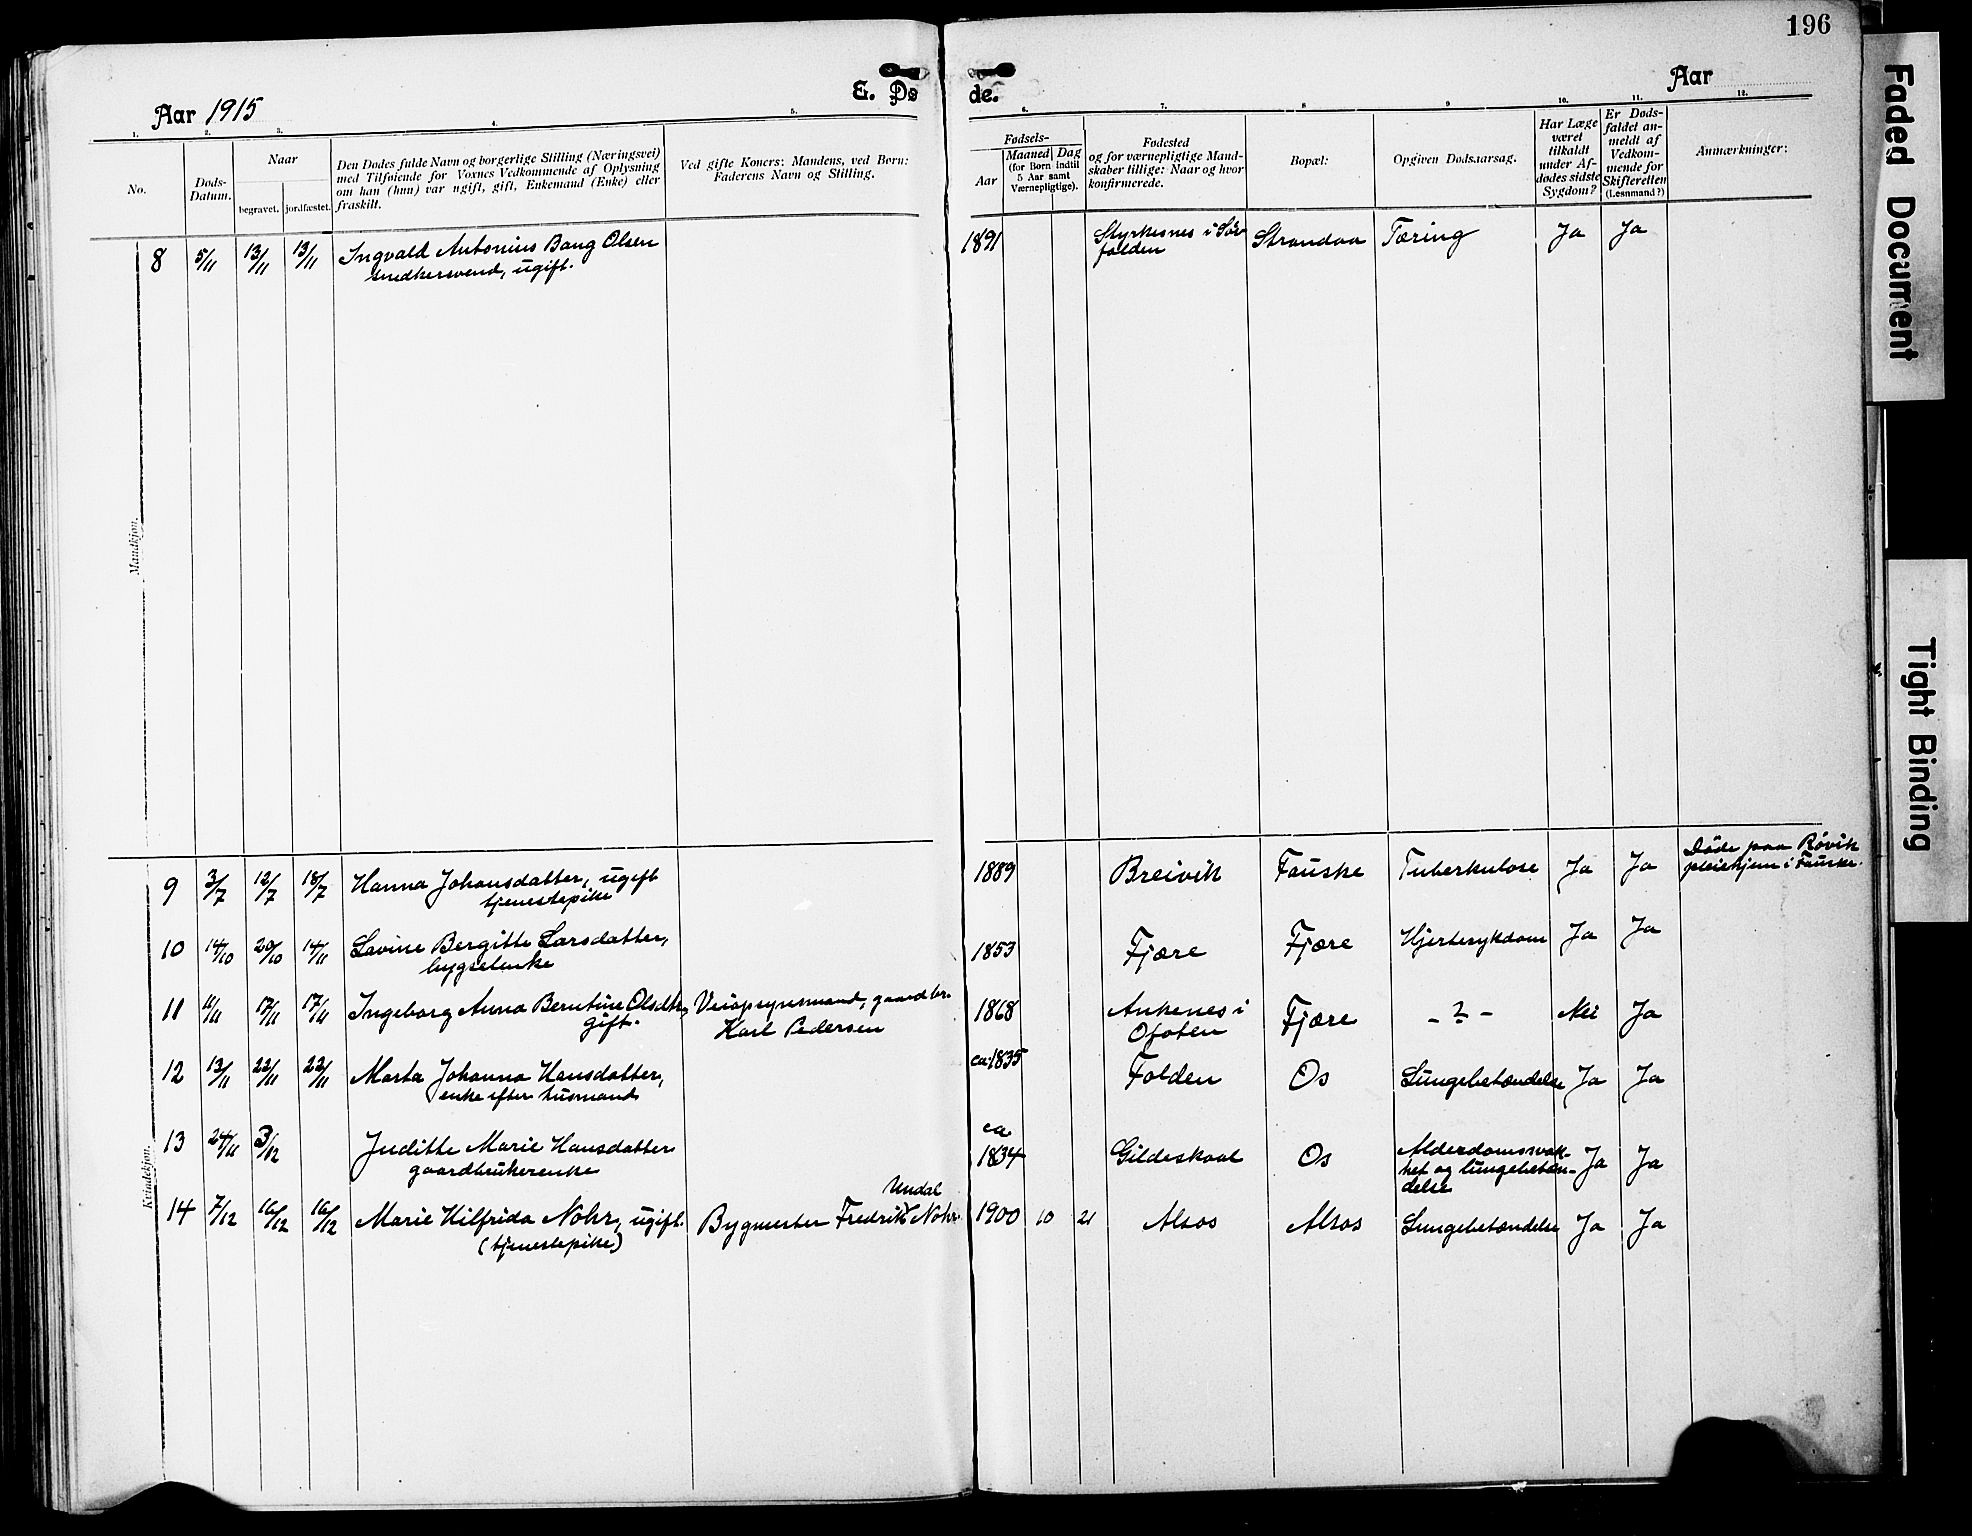 196
Aar 1915
E. Dø
de.
Aar
1.
2.
3.
4.
5.
6.
7.
8
9
10.
11.
12.
No.
Døds-
Datum.
Naar
begravet.
jordfæstet.
Den Dødes fulde Navn og borgerlige Stilling (Næringsvei)
med Tilføiende for Voxnes Vedkommende af Oplysning
om han (hun) var ugift, gift, Enkemand (Enke) eller
fraskilt.
Ved gifte Koners: Mandens, ved Børn:
Faderens Navn og Stilling.
Fødsels-
Aar
Maaned
Dag
(for Børn indtil
5 Aar samt
Værnepligtige).
Fødested
og for værnepligtige Mand-
skaber tillige: Naar og hvor
konfirmerede.
Bopæl:
Opgiven Dødsaarsag.
Har Læge
været
tilkaldt
under Af-
dødes sidste
Sygdom?
Er Døds-
faldet an-
meldt af
Vedkom-
mende for
Skifteretten
(Lesnmand?)
Anmærkninger:
Mandkjøn.
8 5/11 13/11 13/11 Ingvald Antonius Bang Olsen
snedkersvend, ugift.
1891 Styrkesnes i Sør
folden
Strandaa Tæring Ja Ja
Kvindekjøn.
9 3/7 12/7 18/7 Hanna Johansdatter, ugift
tjenestepike
1889 Breivik Fauske Tuberkulose Ja Ja Døde paa Røvik
pleiehjem i Fauske.
10 14/10 20/10 14/11 Lavine Bergitte Larsdatter,
bygselenke
1853 Fjære Fjære Hjertesykdom Ja Ja
11 11/11 17/11 17/11 Ingeborg Anna Berntine Olsdtr,
gift.
Veiopsynsmand, gaardbr.
Karl Pedersen
1868 Ankenes i
Ofoten
Fjære - ? - Nei Ja
12 13/11 22/11 22/11 Marta Johanna Hansdatter,
enke efter husmand
ca. 1835 Folden Os Lungebetændelse Ja Ja
13 24/11 3/12 Juditte Marie Hansdatter
gaardbrukerenke
ca
1834 Gildeskaal Os Alderdomssvak-
het og lungebetæn-
delse
Ja Ja
14 7/12 16/12 16/12 Marie Hilfrida Nohr, ugift.
(tjenestepike)
Undal
Bygmester Fredrik Nohr.
1900 10 21 Alsos Alsos Lungebetændelse Ja Ja
Faded Document
Tight Binding